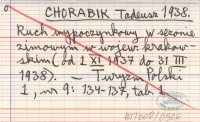 CHORABIK Tadeusz 1938.
Ruch wypoczynkowy w sezonie
zimowym w wojew. krakow-
skim (od 1 XI 1937 do 31 III
1938). — Turyzm Polski
1, nr 9: 134-137, tab. 1